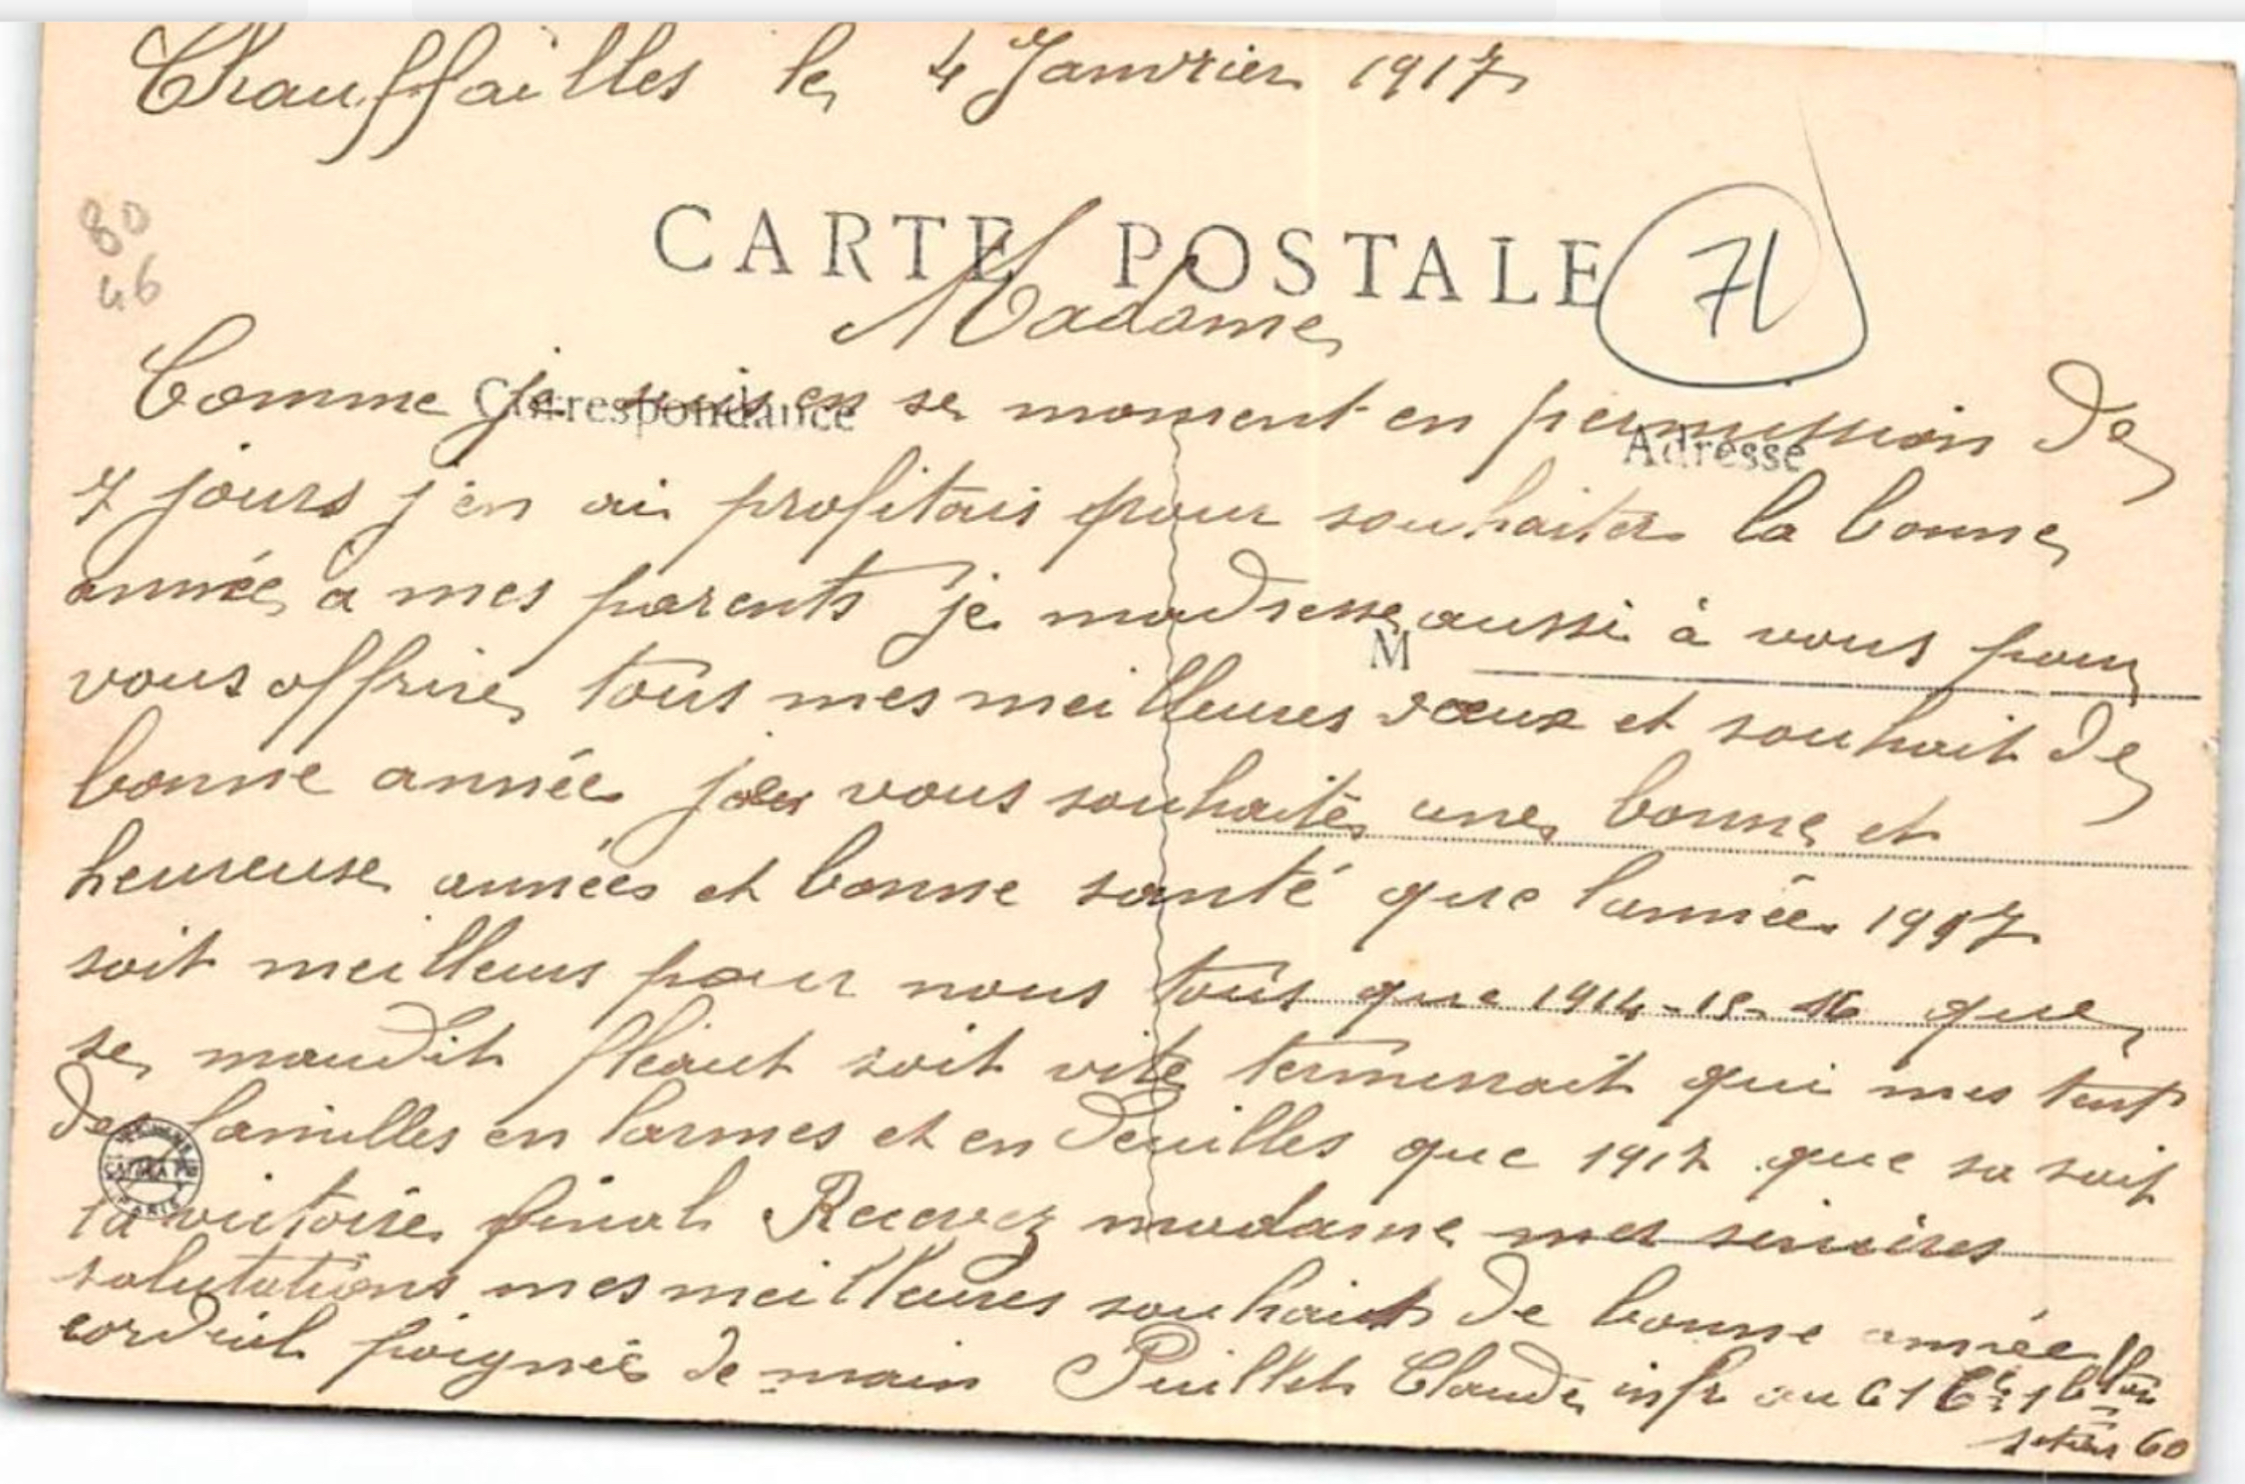 Chauffailles le 4 Janvier 1917
80
46
CARTE POSTALE
71
Madame
Correspondance
Adresse
Comme je suis en se moment en permission de
7 jours j'en ai profitais pour souhaiter la bonne
année à mes parents je madresse aussi à vous pour
M
vous offrire tous mes meilleures vœux et souhait de
bonne année je vous souhaite une bonne et
heureuse années et bonne santé que lannée 1917
soit meilleurs pour nous tous que 1914-15-16 que
se maudit fléaut soit vite terminait qui mes tent
de familles en larmes et en deuilles que 1917 que sa soit
PARIS
la victoire final Recevez madame mes sincères
salutations mes meilleures souhaits de bonne année
cordial poignés de main Puillet Claude infr au 61 1
60